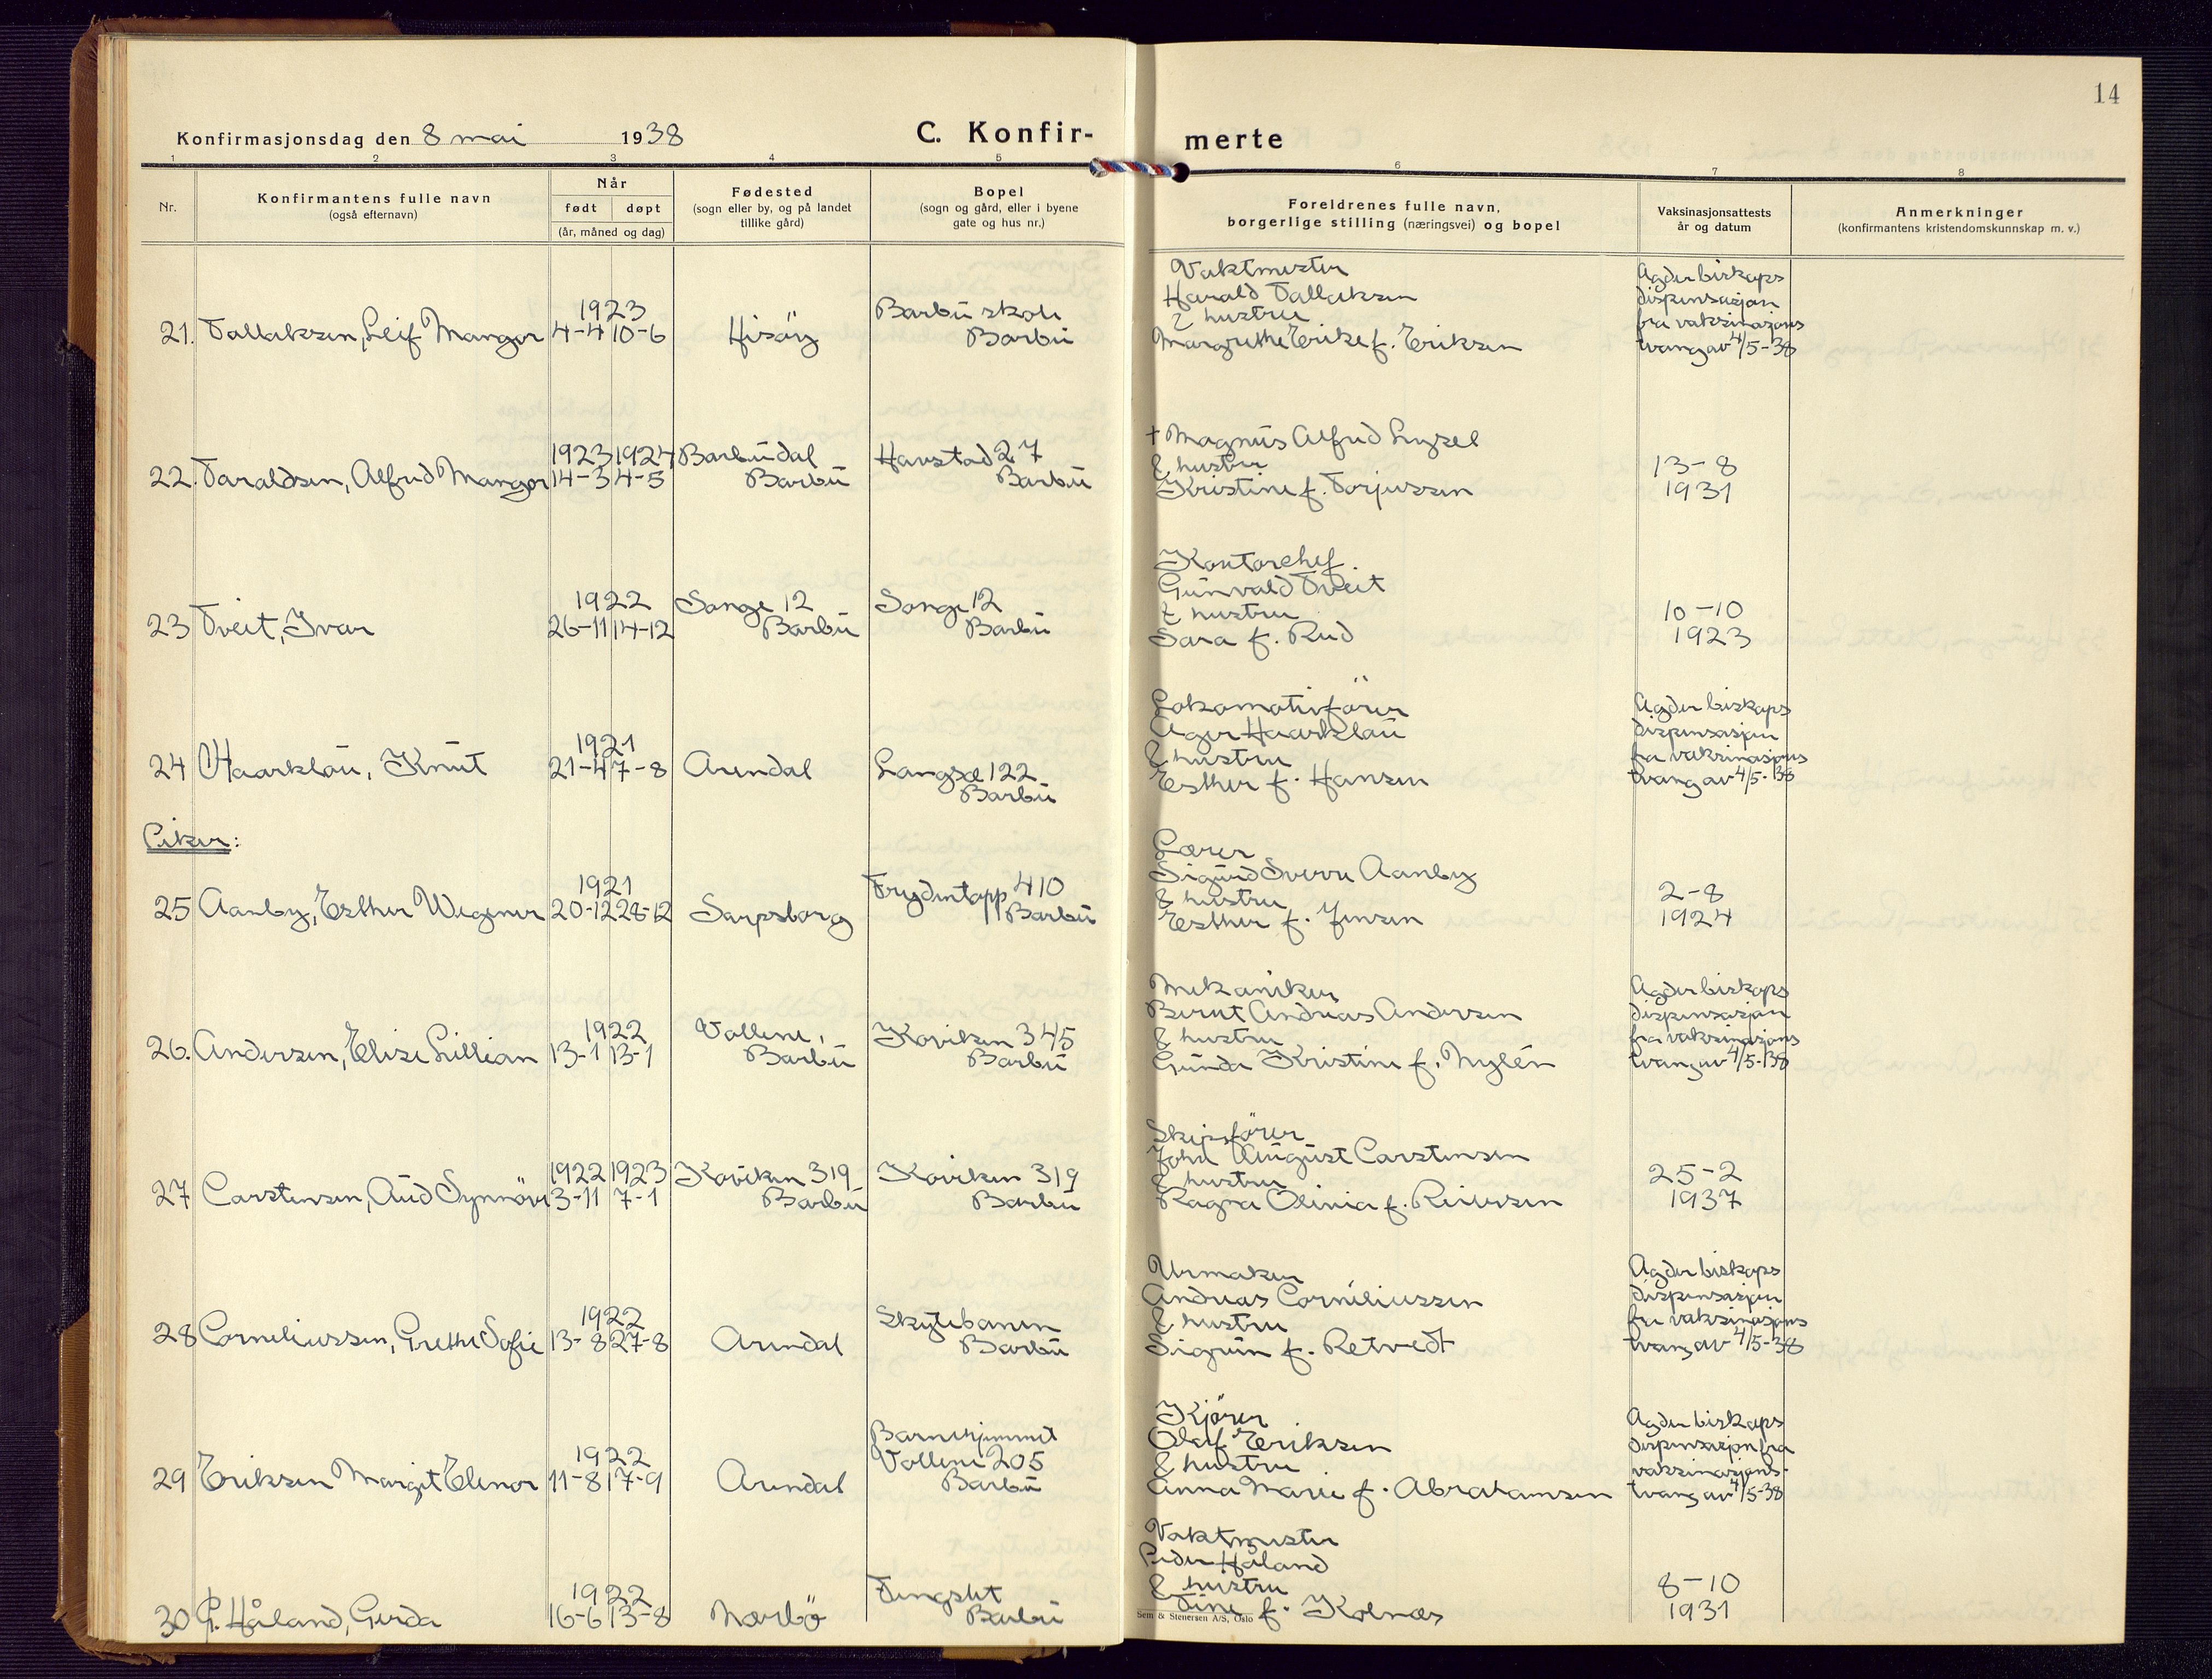 14
Konfirmasjonsdag den 8 mai 1938
C. Konfir-
merte
1 2 3 4 5 6 7 8
Nr.
Konfirmantens fulle navn
(også efternavn)
Når
født døpt
(år, måned og dag)
Fødested
(sogn eller by, og på landet
tillike gård)
Bopel
(sogn og gård, eller i byene
gate og hus nr.)
Foreldrenes fulle navn,
borgerlige stilling (næringsvei) og bopel
Vaksinasjonsattests
år og datum
Anmerkninger
(konfirmantens kristendomskunnskap m. v.)
21. Tallaksen, Leif Mangor
1923
4-4 10-6
Hisöy
Barbu skole
Barbu
Vaktmester
Harald Tallaksen
& hustru
Margrethe Erike f. Eriksen
Agder biskops
dispensasjon
fra vaksinasjons
tvang av 4/5-38
22. Taraldsen, Alfred Mangor
1923 1924
14-3 4-5
Barbudal
Barbu
Havstad 27
Barbu
+ Magnus Alfred Lysel
& hustru
Kristine f. Torjussen
13-8
1931
23 Tveit, Ivar
1922
26-11 14-12
Songe 12
Barbu
Songe 12
Barbu
Kontorchef
Gunvald Tveit
& hustru
Sara f. Rud
10-10
1923
24 Haarklau, Knut
1921
21-4 7-8
Arendal
Langsæ 122
Barbu
Lokomotivförer
Ager Haarklau
& hustru
Esther f. Hansen
Agder biskops
dispensasjon
fra vaksinasjons
tvang av 4/5-38
Piker:
25 Aanby, Esther Wegner
1921
20-12 28-12
Sarpsborg
Frydentopp 410
Barbu
Lærer
Sigurd Sverre Aanby
& hustru
Esther f. Jensen
2-8
1924
26. Andersen, Elise Lillian
1922
13-1 13-1
Vollene,
Barbu
Koviken 345
Barbu
Mekaniker
Bernt Andreas Andersen
& hustru
Gunda Kristine f. Nylén
Agder biskops
dispensasjon
fra vaksinasjons
tvang av 4/5-38
27 Carstensen, Aud Synnöve
1922 1923
3-11 7-1
Koviken 319
Barbu
Koviken 319
Barbu
Skipsförer
John August Carstensen
& hustru
Ragna Olinia f. Reiersen
25-2
1937
28 Corneliussen, Grethe Sofie
1922
13-8 27-8
Arendal
Skytebanen
Barbu
Urmaker
Andreas Corneliussen
& hustru
Sigrun f. Retvedt
Agder biskops
dispensasjon
fra vaksinasjons
tvang av 4/5-38
29 Eriksen Margit Elenor
1922
11-8 17-9
Arendal
Barnehjemmet
Vollene 205
Barbu
Kjörer
Olaf Eriksen
& hustru
Anna Marie f. Abrahamsen
Agder biskops
dispensasjon fra
vaksinasjons-
tvang av 4/5-38
30 G. Håland, Gerda
1922
16-6 13-8
Nærbö
Tingslet
Barbu
Vaktmester
Peder Håland
& hustru
Tine f. Kolnæs
8-10
1931
Sem & Stenersen A/S, Oslo